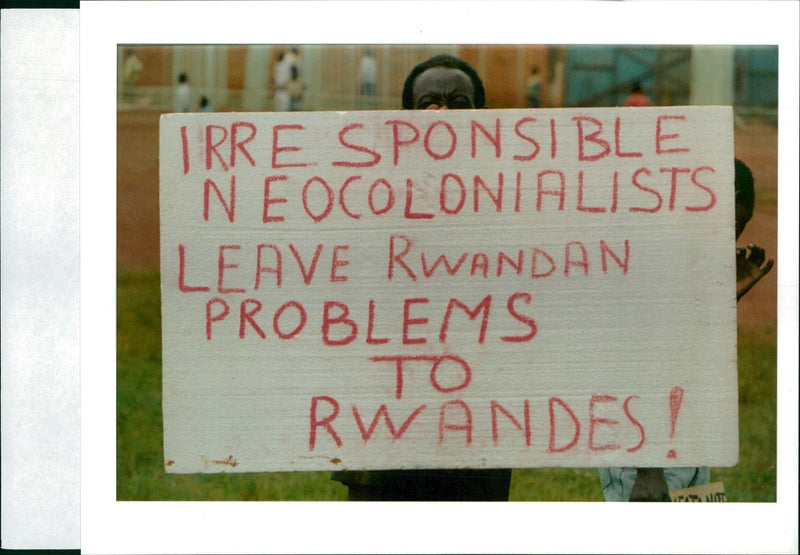 IRRESPONSIBLE
NEOCOLONIALISTS
LEAVE RWANDAN
PROBLEMS
TO
RWANDES!